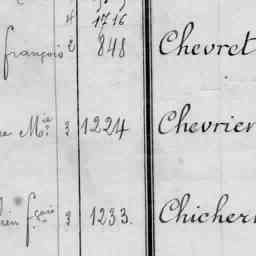 4 1716
françois 2 848 Chevret
Mie 3 1224 Chevrier
fçois 3 1233. Chicher